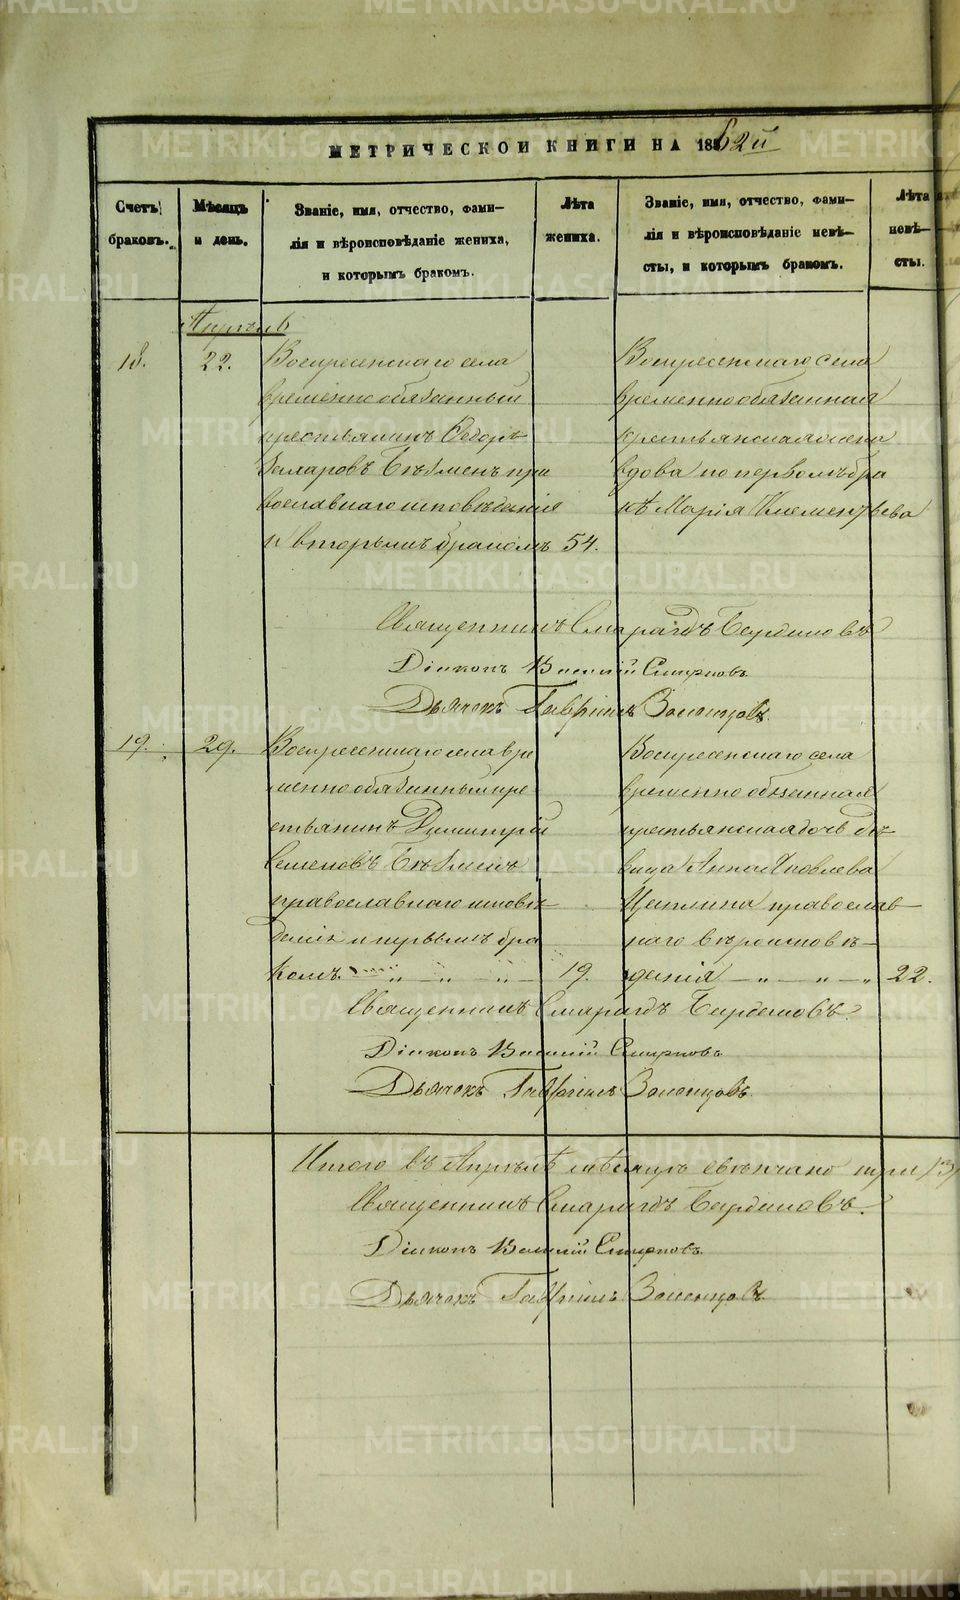 МЕТРИЧЕСКОЙ КНИГИ НА 1862й
Счетъ браковъ.
Мѣсяцъ и день.
Званіе, имя, отчество, фами-
лія и вѣроисповѣданіе жениха,
и которымъ бракомъ.
Лѣта
жениха.
Званіе, имя, отчество, фами-
лія и вѣроисповѣданіе невѣ-
сты, и которымъ бракомъ.
Лѣта
невѣ-
сты.
Апрѣль
18.
22.
Воскресенскаго села
временнообязанный
крестьянинъ Ѳедоръ
Бѣлменъ пра
вославнаго исповѣданія
и вторымъ бракомъ 54.
Воскресенскаго села
временнообязанная
крестьянская жена
вдова по первомъ бра
кѣ Марія Климентьева
Священникъ Смарагдъ Бердниковъ
Діаконъ Василій Смирновъ
Дьячокъ Гавріилъ
19.
29.
Воскресенскаго села вре
менно обязанный кре
стьянинъ Димитрій
Семеновъ
православнаго исповѣ
данія и первымъ бра
комъ. 19.
Воскресенскаго села
временно обязанная
крестьянская дочь дѣ
вица Анна Яковлева
православ
наго вѣроисповѣ-
данія 22.
Священникъ Смарагдъ Бердниковъ.
Діаконъ Василій Смирновъ
Дьячокъ Гавріилъ
Итого въ Апрѣлѣ мѣсяцѣ свѣнчано три /3/
Священникъ Смарагдъ Бердниковъ.
Діаконъ Василій Смирновъ
Дьячокъ Гавріилъ
METRIKI.GASO-URAL.RU